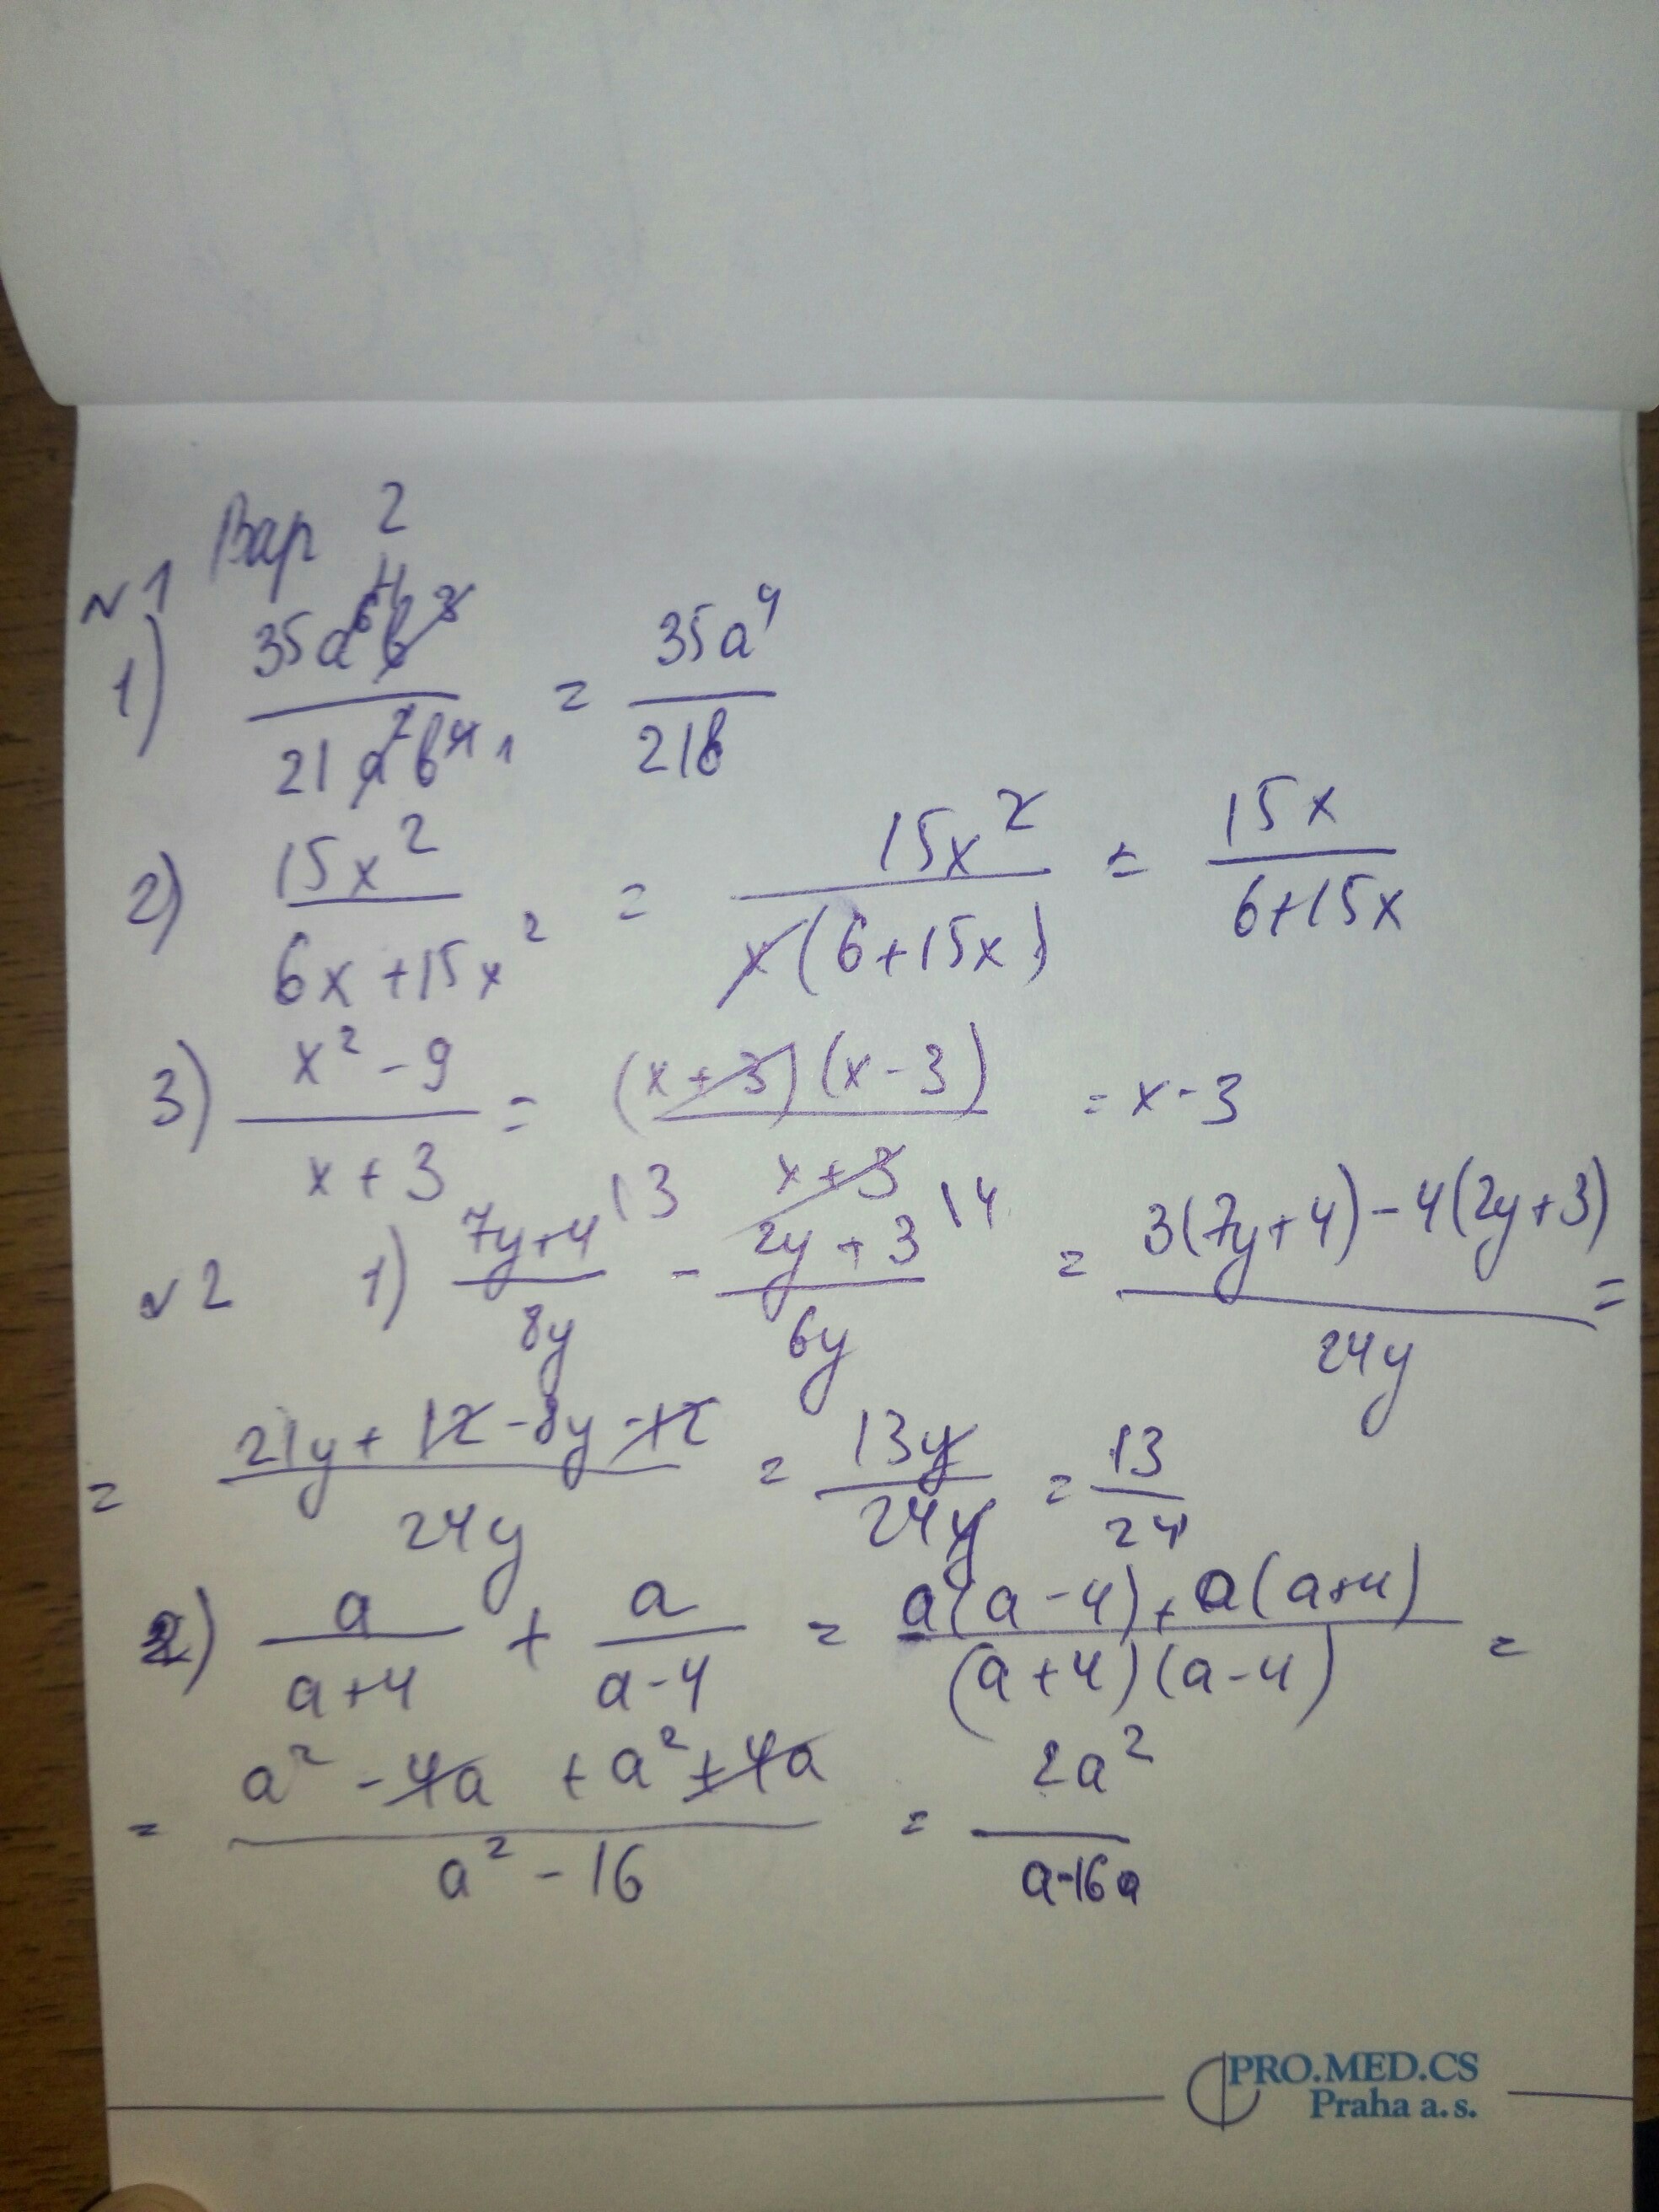 Вар 2
№1
1) 35a⁶b³ / 21a²b⁴ = 35a⁴ / 21b
2) 15x² / 6x+15x² = 15x² / x(6+15x) = 15x / 6+15x
3) x²-9 / x+3 = (x+3)(x-3) / x+3 = x-3
№2 1) 7y+4 / 8y \3 - 2y+3 / 6y \4 = 3(7y+4)-4(2y+3) / 24y =
= 21y+12-8y-12 / 24y = 13y / 24y = 13 / 24
2) a / a+4 + a / a-4 = a(a-4)+a(a+4) / (a+4)(a-4) =
= a²-4a+a²+4a / a²-16 = 2a² / a-16a
PRO.MED.CS
Praha a.s.